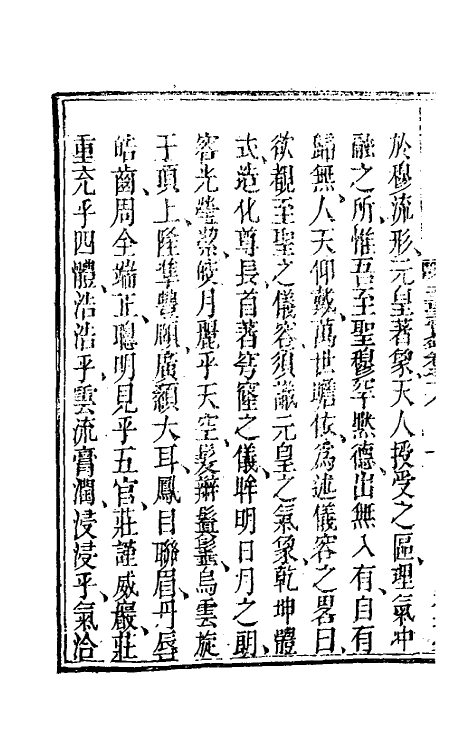 於穆流形元皇著象天人授受之區理氣冲
融之所惟吾至聖穆罕黙德出無入有自有
歸無人天仰戴萬世瞻依為述儀容之畧曰
欲觀至聖之儀容須識元皇之氣象乾坤體
式造化尊長首著穹窿之儀眸明日月之朗
容光瑩潔皎月麗乎天空髮辮鬈鬆烏雲旋
于頂上隆準豐頤廣額大耳鳳目聯眉丹唇
皓齒周全端正聰明見乎五官莊謹威嚴莊
重充乎四體浩浩乎雲流膏潤浸浸乎氣洽